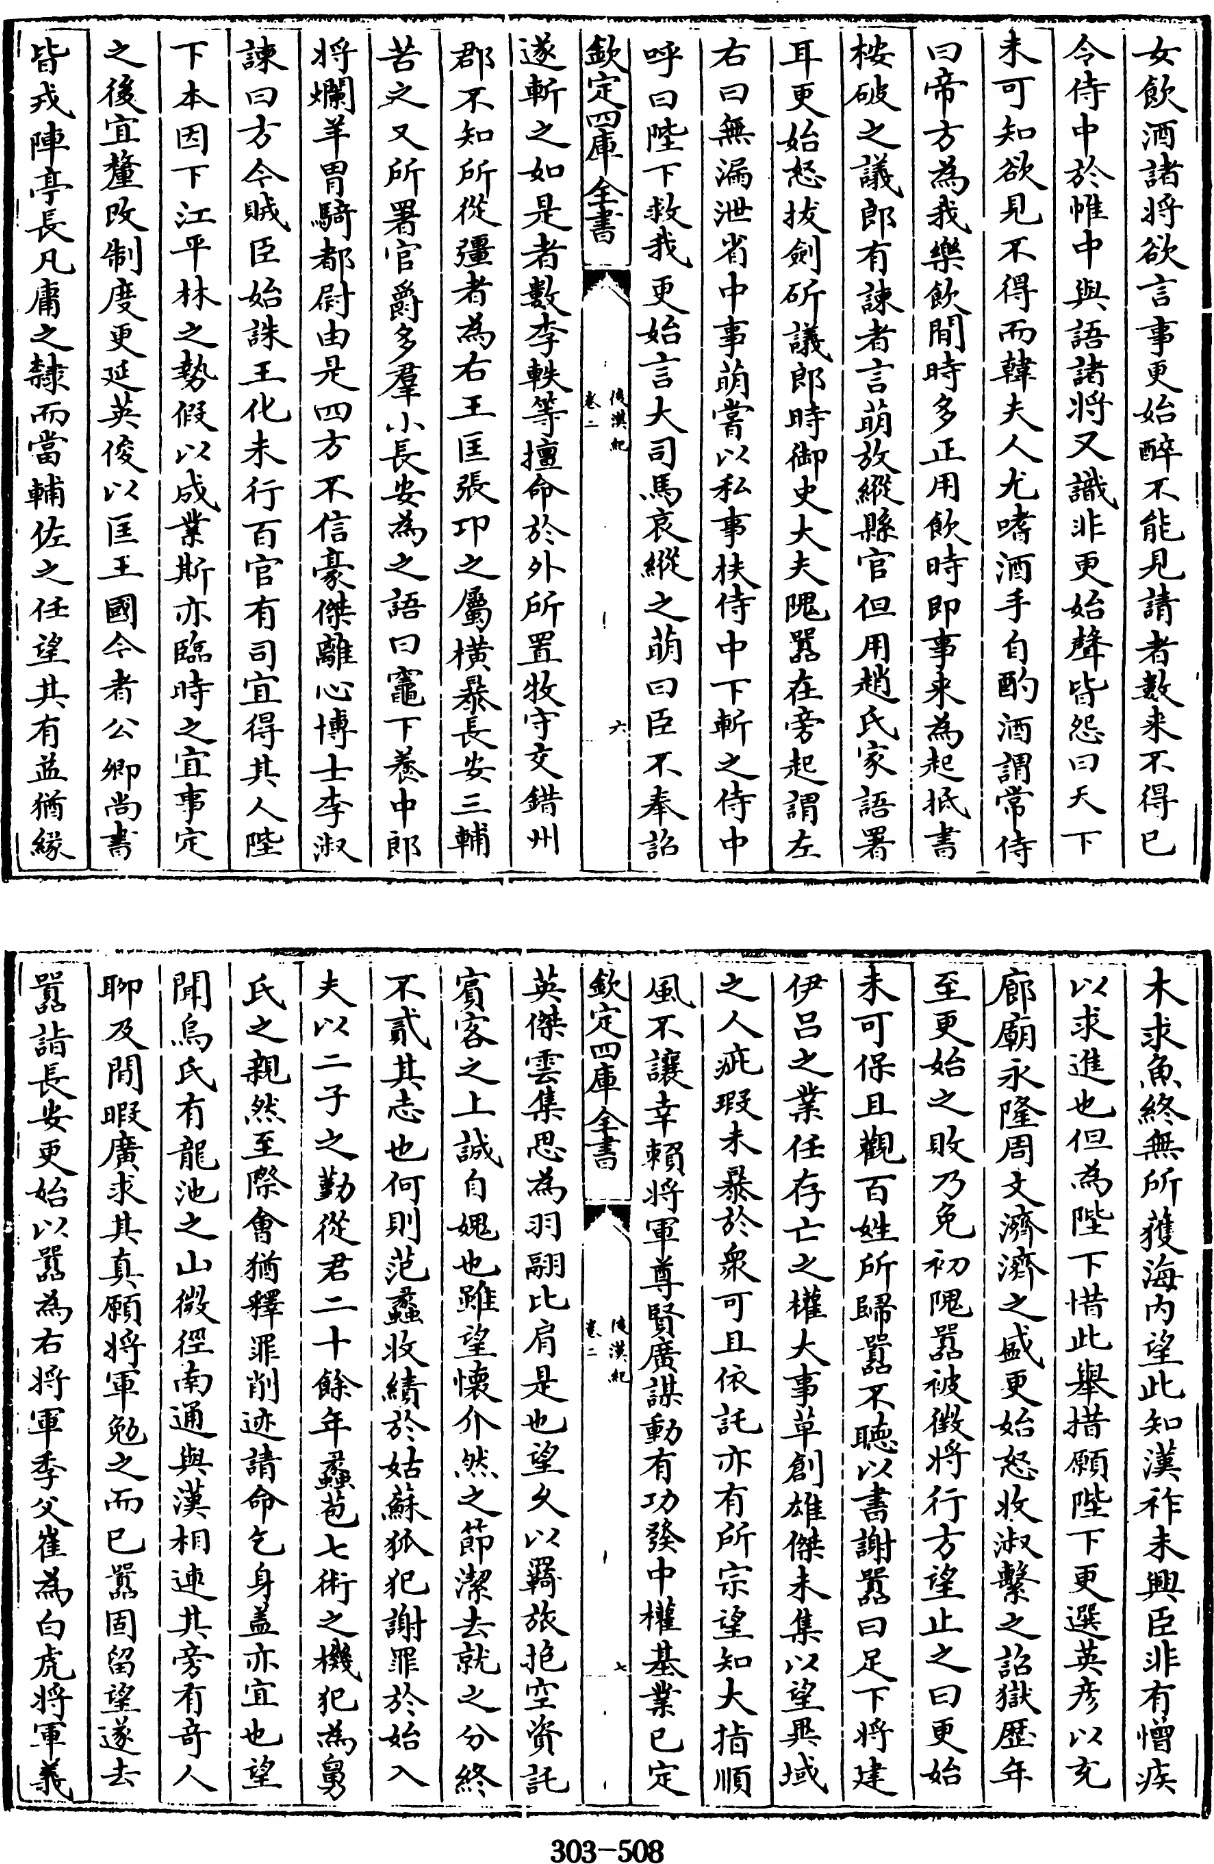 女飲酒諸将欲言事更始醉不能見請者數来不得已
令侍中於帷中與語諸將又識非更始聲皆怨曰天下
未可知欲見不得而韓夫人尤嗜酒手自酌酒謂常侍
曰帝方為我樂飲間時多正用飲時即事来為起抵書
桉破之議郎有諫者言萌放縱縣官但用趙氏家語署
耳更始怒拔劍斫議郎時御史大夫隗嚻在旁起謂左
右曰無漏泄省中事萌嘗以私事扶侍中下斬之侍中
呼曰陛下救我更始言大司馬哀縱之萌曰臣不奉詔
欽定四庫全書
後漢紀
卷二
六
遂斬之如是者數李軼等擅命於外所置牧守交錯州
郡不知所從彊者為右王匡張卭之屬横暴長安三輔
苦之又所署官爵多羣小長安為之語曰竈下養中郎
将爛羊胃騎都尉由是四方不信豪傑離心博士李淑
諫曰方今賊臣始誅王化未行百官有司宜得其人陛
下本因下江平林之勢假以成業斯亦臨時之宜事定
之後宜釐改制度更延英俊以匡王國今者公卿尚書
皆戎陣亭長凡庸之隸而當輔佐之任望其有益猶縁
木求魚終無所獲海内望此知漢祚未興臣非有憎疾
以求進也但為陛下惜此舉措願陛下更選英彦以充
廊廟永隆周文濟濟之盛更始怒收淑繫之詔獄歴年
至更始之敗乃免初隗嚻被徴將行方望止之曰更始
未可保且觀百姓所歸嚻不聴以書謝嚻曰足下將建
伊呂之業任存亡之權大事草創雄傑未集以望異域
之人疵瑕未暴於衆可且依託亦有所宗望知大指順
風不讓幸賴將軍尊賢廣謀動有功發中權基業已定
欽定四庫全書
後漢紀
卷二
七
英傑雲集思為羽翮比肩是也望久以羇旅抱空資託
賓客之上誠自媿也雖望懷介然之節潔去就之分終
不貳其志也何則范蠡收績於姑蘇狐犯謝罪於始入
夫以二子之勤從君二十餘年蠡苞七術之機犯為舅
氏之親然至際會猶釋罪削迹請命乞身盖亦宜也望
聞烏氏有龍池之山微徑南通與漢相連其旁有奇人
聊及閒暇廣求其真願將軍勉之而已嚻固留望遂去
嚻詣長安更始以嚻為右將軍季父崔為白虎將軍義
303-508